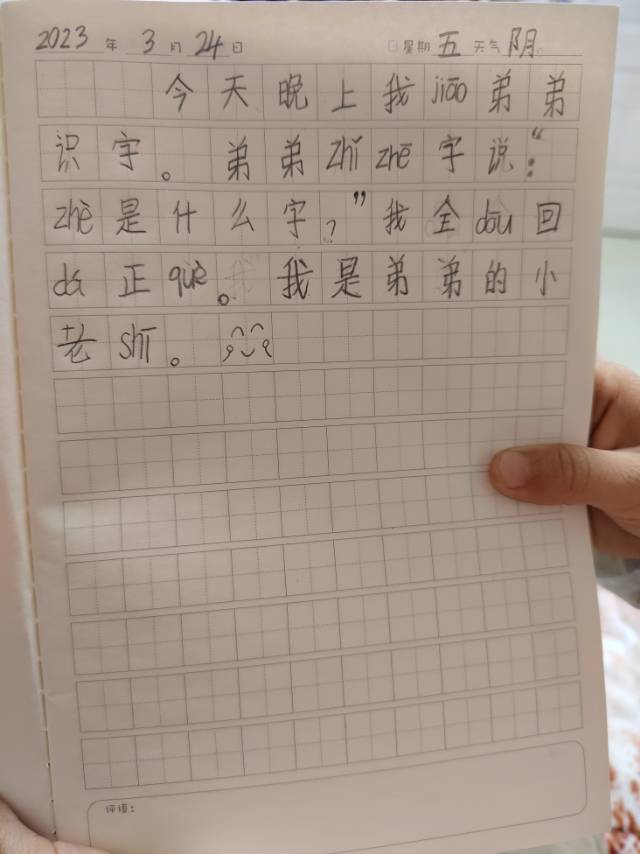 2023年3月24日 星期五 天气阴。
今天晚上我jiāo弟弟
识字。弟弟zhǐ zhē字说:“
zhè是什么字?”我全dōu回
dá正què。我是弟弟的小
老shī。
评语: